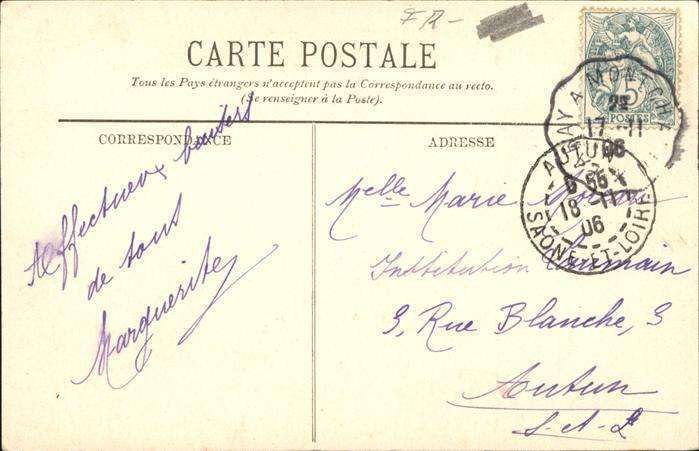 FR-
CARTE POSTALE
Tous les Pays étrangers n'acceptent pas la Correspondance au recto.
(Se renseigner à la Poste).
CORRESPONDANCE
Affectueux baisers
de tous
Marguerite
ADRESSE
Melle Marie
Institution
3, Rue Blanche, 3
Autun
S-et-L
5
POSTES
17 -11
06
AUTUN
6 55
18 -11
06
SAONE-ET-LOIRE